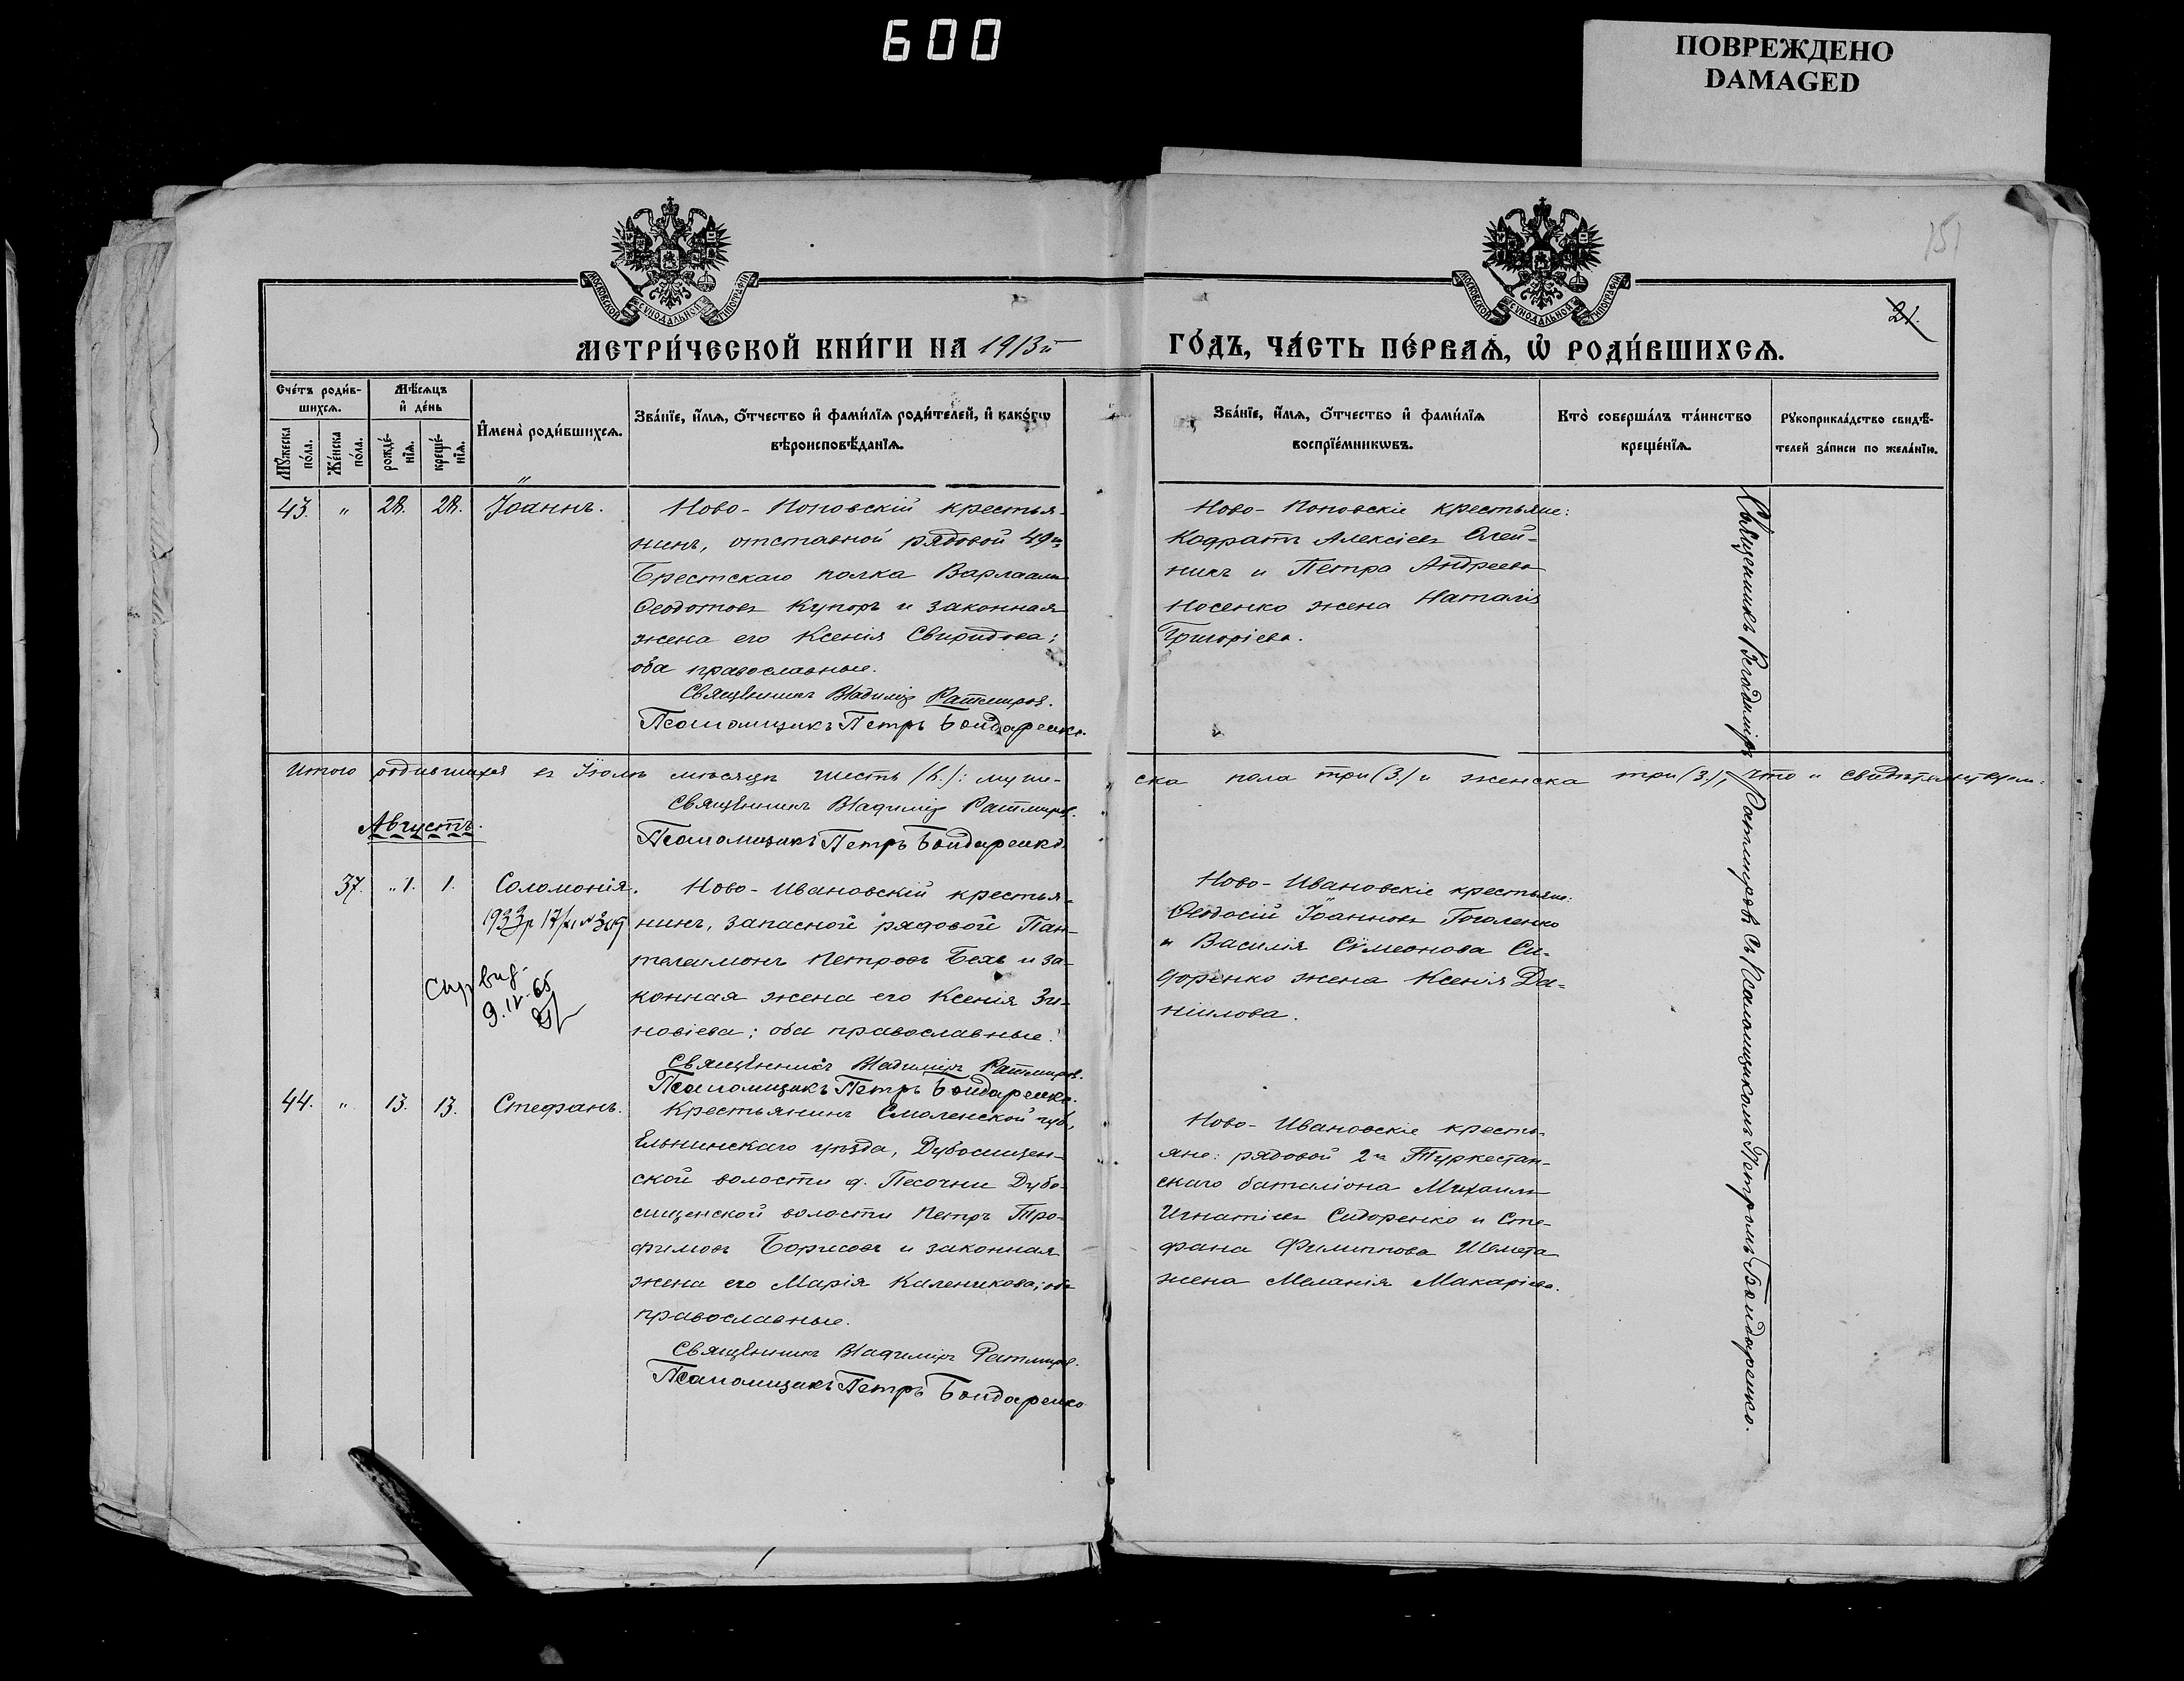 600
ПОВРЕЖДЕНО
DAMAGED
151
21.
МОСКОВСКОЙ СѴНОДАЛЬНОЙ ТИПОГРАФІИ
МОСКОВСКОЙ СѴНОДАЛЬНОЙ ТИПОГРАФІИ
МЕТРИ́ЧЕСКОЙ КНИ́ГИ НА 1913й
ГО́ДЪ, ЧА́СТЬ ПЕ́РВАѦ, Ѡ҆ РОДИ́ВШИХСѦ.
Сче́тъ роди́в-
шихсѧ.
Мꙋ́жеска
по́ла.
Же́нска
по́ла.
Мѣ́сѧцъ
и҆ де́нь
рожде́-
нїѧ.
креще́-
нїѧ.
И҆мена̀ роди́вшихсѧ.
Зва́нїе, и҆́мѧ, ѻ҆́тчество и҆ фами́лїѧ роди́телей, и҆ како́гѡ
вѣроисповѣ́данїѧ.
Зва́нїе, и҆́мѧ, ѻ҆́тчество и҆ фами́лїѧ
воспрїе́мникѡвъ.
Кто̀ соверша́лъ та́инство
креще́нїѧ.
Рꙋкоприкла́дство свидѣ́-
телей за́писи по жела́нїю.
43. " 28. 28. Іоаннъ.
Ново-Поповскій крестья-
нинъ, отставной рядовой 49го
Брестскаго полка Варлаамъ
Ѳеодотовъ Купоръ и законная
жена его Ксенія Свиридова;
оба православные.
Священникъ Владиміръ Ратмировъ.
Псаломщикъ Петръ Бондаренко.
Ново-Поповскіе крестьяне:
Кодратъ Алексіевъ Олей-
никъ и Петра Андреева
Носенко жена Наталія
Григоріева.
Итого родившихся въ Іюлѣ мѣсяцѣ шесть (6.): муже-
ска пола три (3.) и женска три (3.), что и свидѣтельствуемъ:
Священникъ Владиміръ Ратмировъ.
Псаломщикъ Петръ Бондаренко.
Августъ.
37. " 1. 1. Соломонія.
1933р 17/
9.IV.65
Ново-Ивановскій крестья-
нинъ, запасной рядовой Пан-
телеимонъ Петровъ Бехъ и за-
конная жена его Ксенія Зи-
новіева; оба православные.
Священникъ Владиміръ Ратмировъ.
Псаломщикъ Петръ Бондаренко.
Ново-Ивановскіе крестьяне:
Ѳеодосій Іоанновъ Гоголенко
и Василія Сѵмеонова Си-
доренко жена Ксенія Да-
ніилова.
44. " 13. 13. Стефанъ.
Крестьянинъ Смоленской губ.,
Ельнинскаго уѣзда, Дубосищен-
ской волости д. Песочни Дубо-
сищенской волости Петръ Тро-
фимовъ Борисовъ и законная
жена его Марія Каленикова; оба
православные.
Священникъ Владиміръ Ратмировъ.
Псаломщикъ Петръ Бондаренко
Ново-Ивановскіе кресть-
яне: рядовой 2го Туркестан-
скаго баталіона Михаилъ
Игнатіевъ Сидоренко и Сте-
фана Филиппова Шемета
жена Меланія Макаріева.
Священникъ Владиміръ Ратмировъ съ Псаломщикомъ Петромъ Бондаренко.